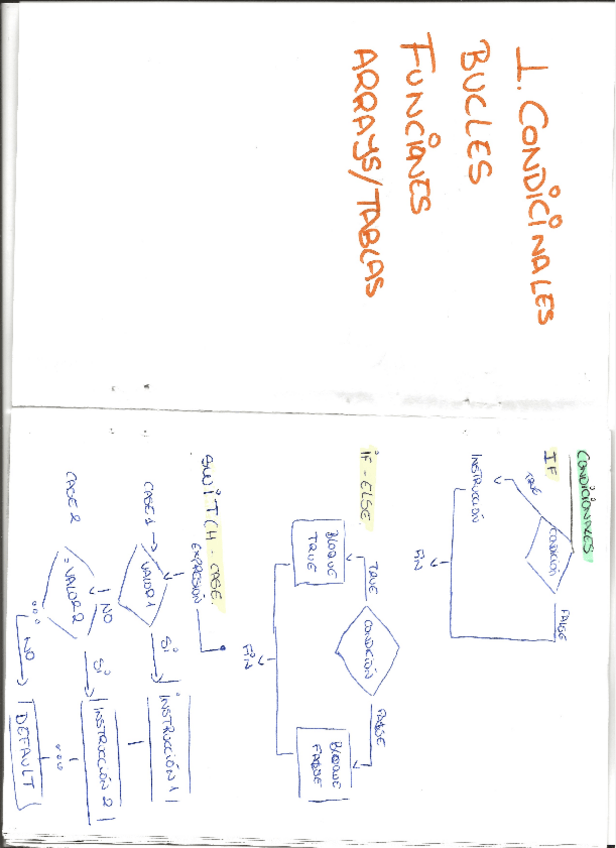 1. CONDICINALES
BUCLES
FUNCIONES
ARRAYS/TABLAS
CONDICIONALES
IF
CONDICIÓN
TRUE
FALSE
INSTRUCCIÓN
FIN
IF - ELSE
CONDICIÓN
TRUE
FALSE
BLOQUE TRUE
BLOQUE FALSE
FIN
SWITCH - CASE.
EXPRESIÓN
CASE 1 → VALOR 1
SÍ
INSTRUCCIÓN 1
NO
CASE 2
= VALOR 2
SÍ
INSTRUCCIÓN 2
...
...
NO
DEFAULT